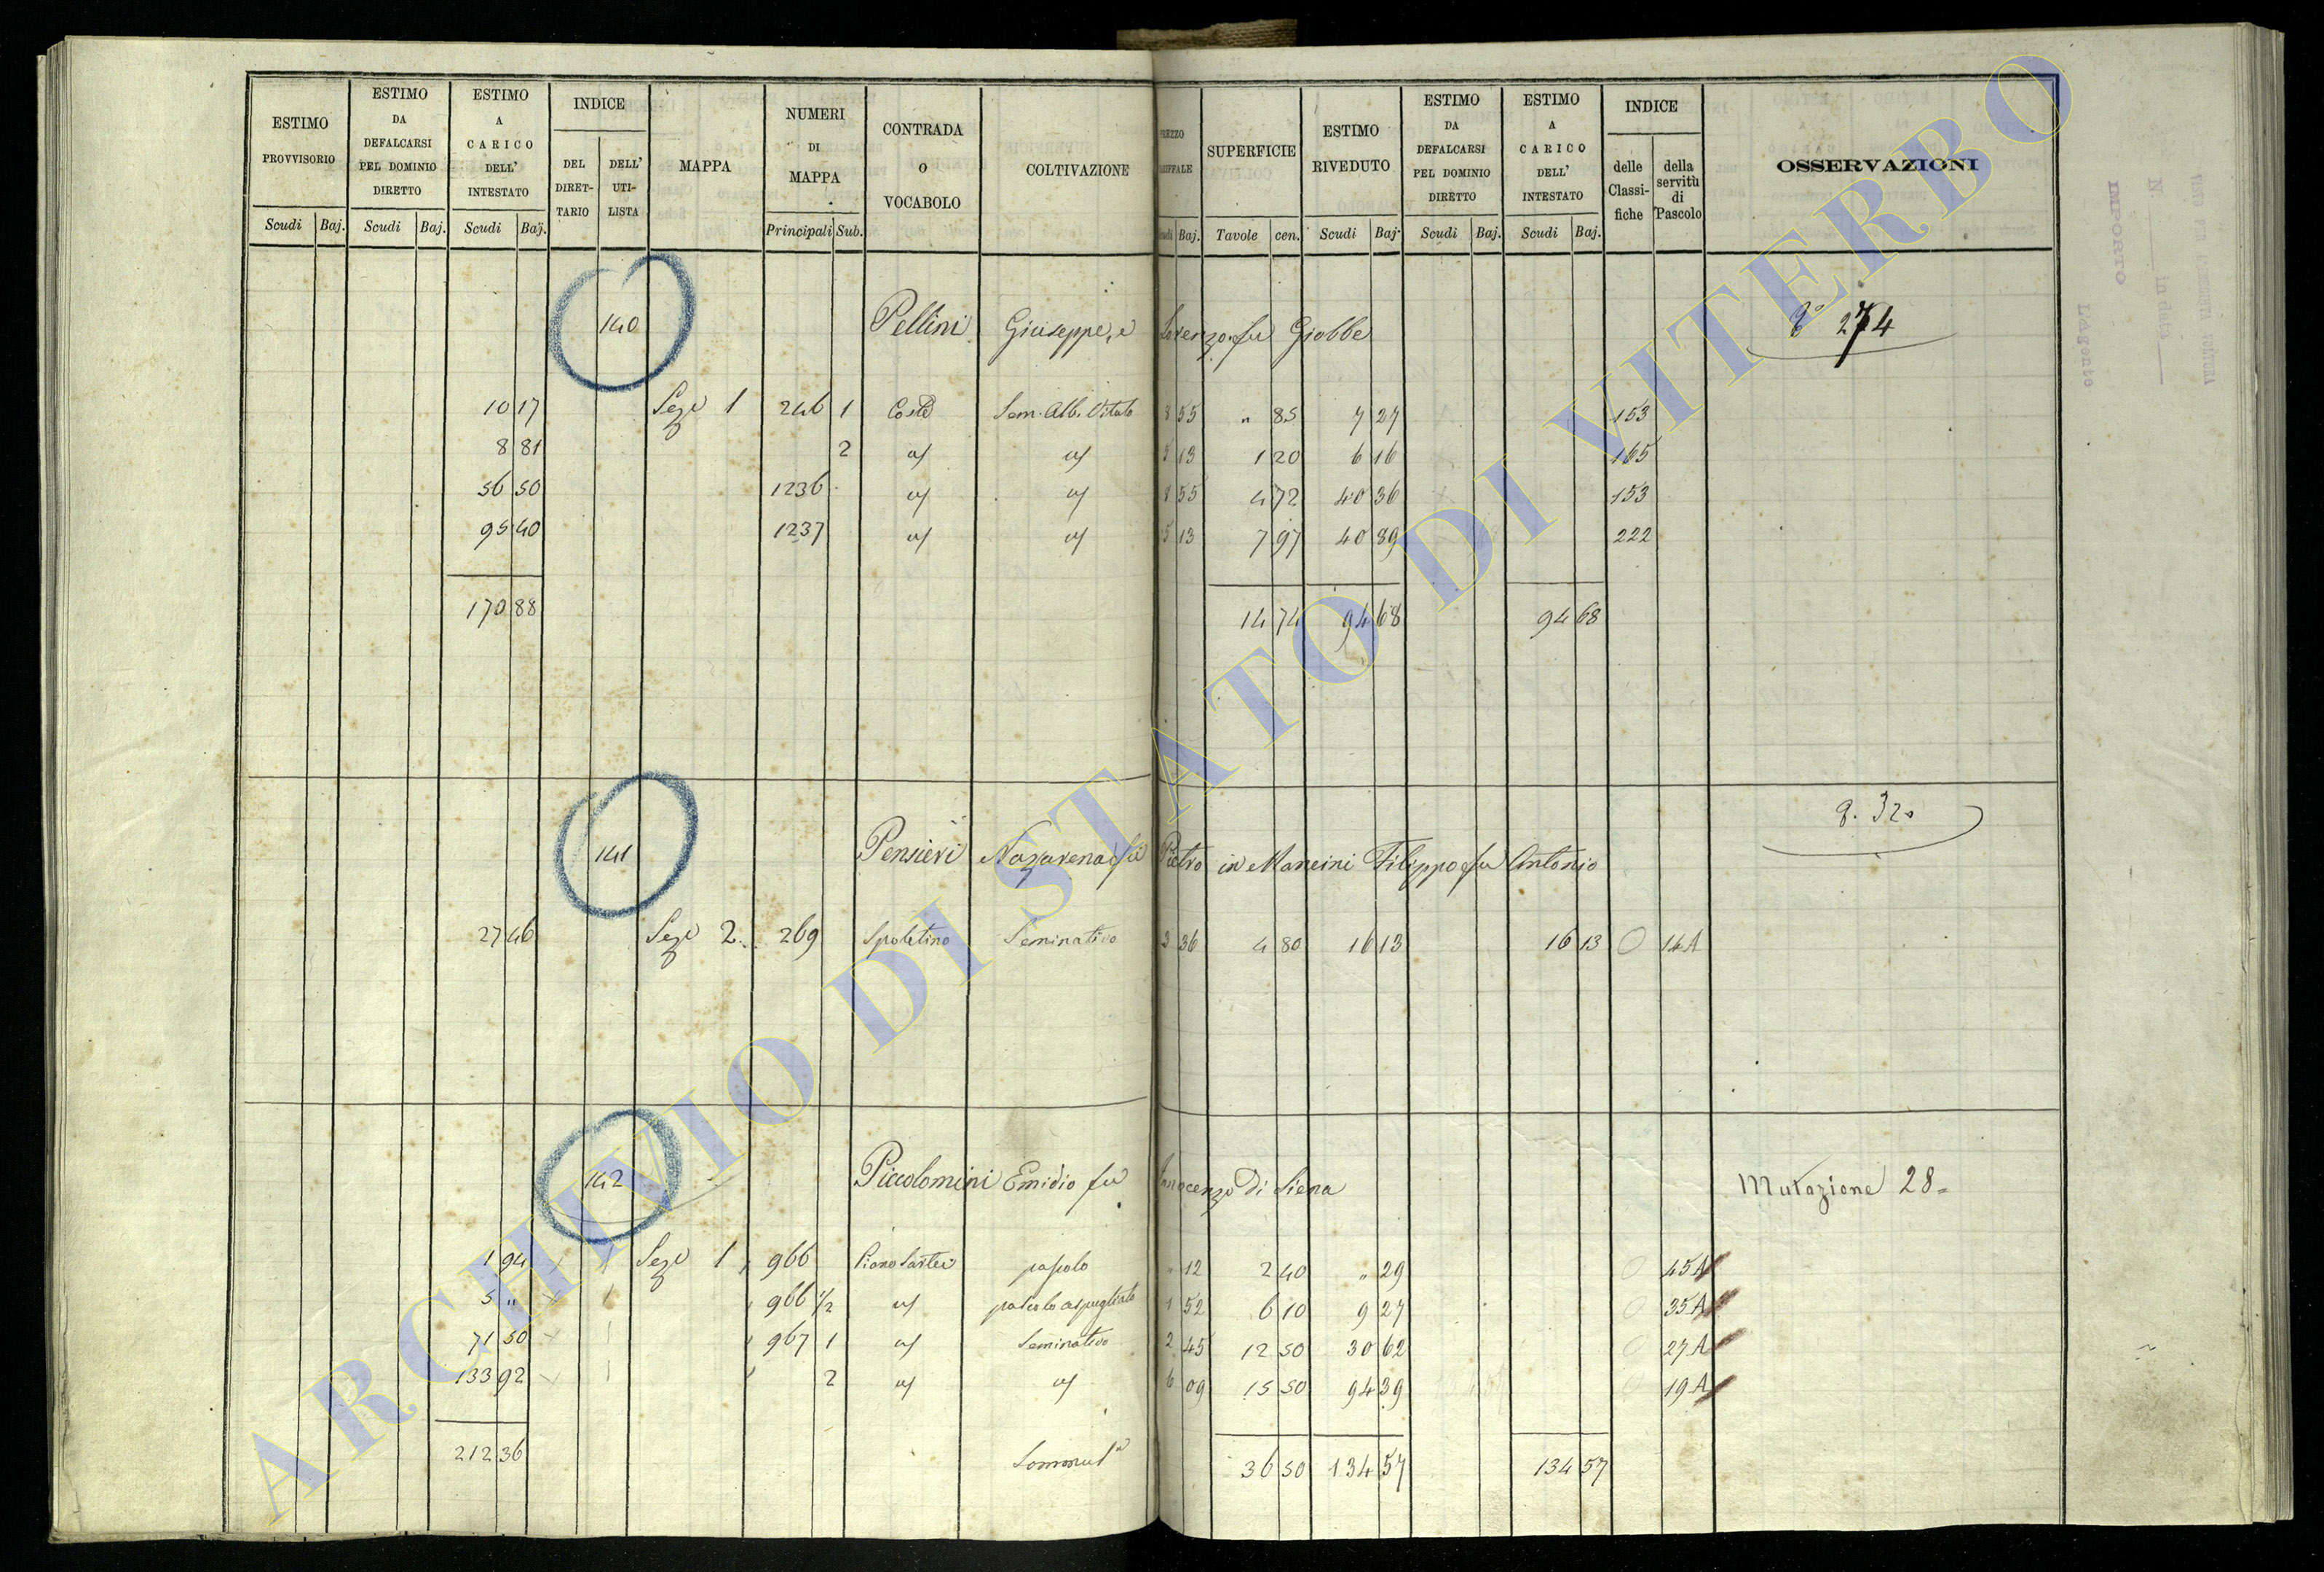 ESTIMO PROVVISORIO
ESTIMO DA DEFALCARSI PEL DOMINIO DIRETTO
ESTIMO A CARICO DELL' INTESTATO
INDICE
DEL DIRET-TARIO
DELL' UTI-LISTA
MAPPA
NUMERI DI MAPPA
CONTRADA O VOCABOLO
COLTIVAZIONE
SUPERFICIE
ESTIMO RIVEDUTO
ESTIMO DA DEFALCARSI PEL DOMINIO DIRETTO
ESTIMO A CARICO DELL' INTESTATO
INDICE
delle Classi-fiche
della servitù di Pascolo
OSSERVAZIONI
Scudi Baj. Scudi Baj. Scudi Baj. Principali Sub. Baj. Tavole cen. Scudi Baj. Scudi Baj. Scudi Baj.
140 Pellini Giuseppe, e Lorenzo fu Giobbe 274
10 17 Seze 1 246 1 Coste Sem. Alb. Vitato 8 55 " 85 7 27 153
8 81 2 5 13 1 20 6 16 165
56 50 1236 8 55 4 72 40 36 153
95 40 1237 5 13 7 97 40 89 222
170 88 14 74 94 68 94 68
141 Pensieri Nazarena fu Pietro in Mancini Filippo fu Antonio
27 46 Seze 2 269 Spoletino Seminativo 3 36 4 80 16 13 16 13 14A
142 Piccolomini Emidio fu Innocenzo di Siena Mutazione 28
1 94 Seze 1 966 " 12 2 40 " 29 45A
5 " 966 1/2 1 52 6 10 9 27 35A
71 50 967 1 Seminativo 2 45 12 50 30 62 27A
133 92 2 6 09 15 50 94 39 19A
212 36 36 50 134 57 134 57
ARCHIVIO DI STATO DI VITERBO